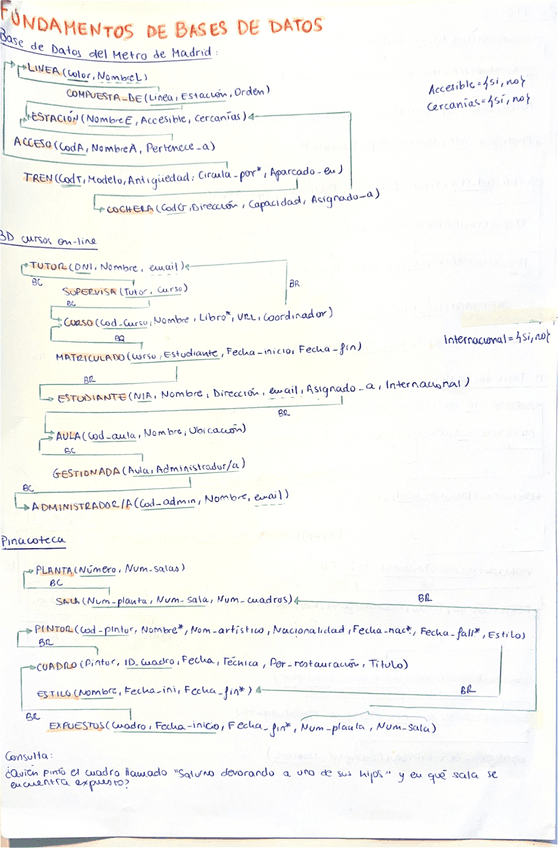 FUNDAMENTOS DE BASES DE DATOS
Base de Datos del Metro de Madrid:
LINEA (Color, NombreL)
COMPUESTA_DE (Línea, Estación, Orden)
Accesible = {sí, no}
Cercanías = {sí, no}
ESTACIÓN (NombreE, Accesible, Cercanías)
ACCESO (CodA, NombreA, Pertenece_a)
TREN (CodT, Modelo, Antigüedad, Circula_por*, Aparcado_en)
COCHERA (CodC, Dirección, Capacidad, Asignado_a)
BD cursos on-line
TUTOR (DNI, Nombre, email)
BC
BR
SUPERVISA (Tutor, Curso)
BC
CURSO (Cod_Curso, Nombre, Libro*, URL, Coordinador)
BR
MATRICULADO (Curso, Estudiante, Fecha_inicio, Fecha_fin)
Internacional = {sí, no}
BR
ESTUDIANTE (NIA, Nombre, Dirección, email, Asignado_a, Internacional)
BR
AULA (Cod_aula, Nombre, Ubicación)
BC
GESTIONADA (Aula, Administrador/a)
BC
ADMINISTRADOR/A (Cod_admin, Nombre, email)
Pinacoteca
PLANTA (Número, Num_salas)
BC
BR
SALA (Num_planta, Num_sala, Num_cuadros)
PINTOR (Cod_pintor, Nombre*, Nom_artístico, Nacionalidad, Fecha_nac*, Fecha_fall*, Estilo)
BR
CUADRO (Pintor, ID_cuadro, Fecha, Técnica, Per_restauración, Título)
ESTILO (Nombre, Fecha_ini, Fecha_fin*)
BR
BC
EXPUESTOS (Cuadro, Fecha_inicio, Fecha_fin*, Num_planta, Num_sala)
Consulta:
¿Quién pintó el cuadro llamado "Saturno devorando a uno de sus hijos" y en qué sala se
encuentra expuesto?